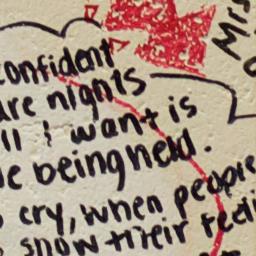 Mrs
confident
are nights
all i want is
be being held.
cry, when people
show their feeli